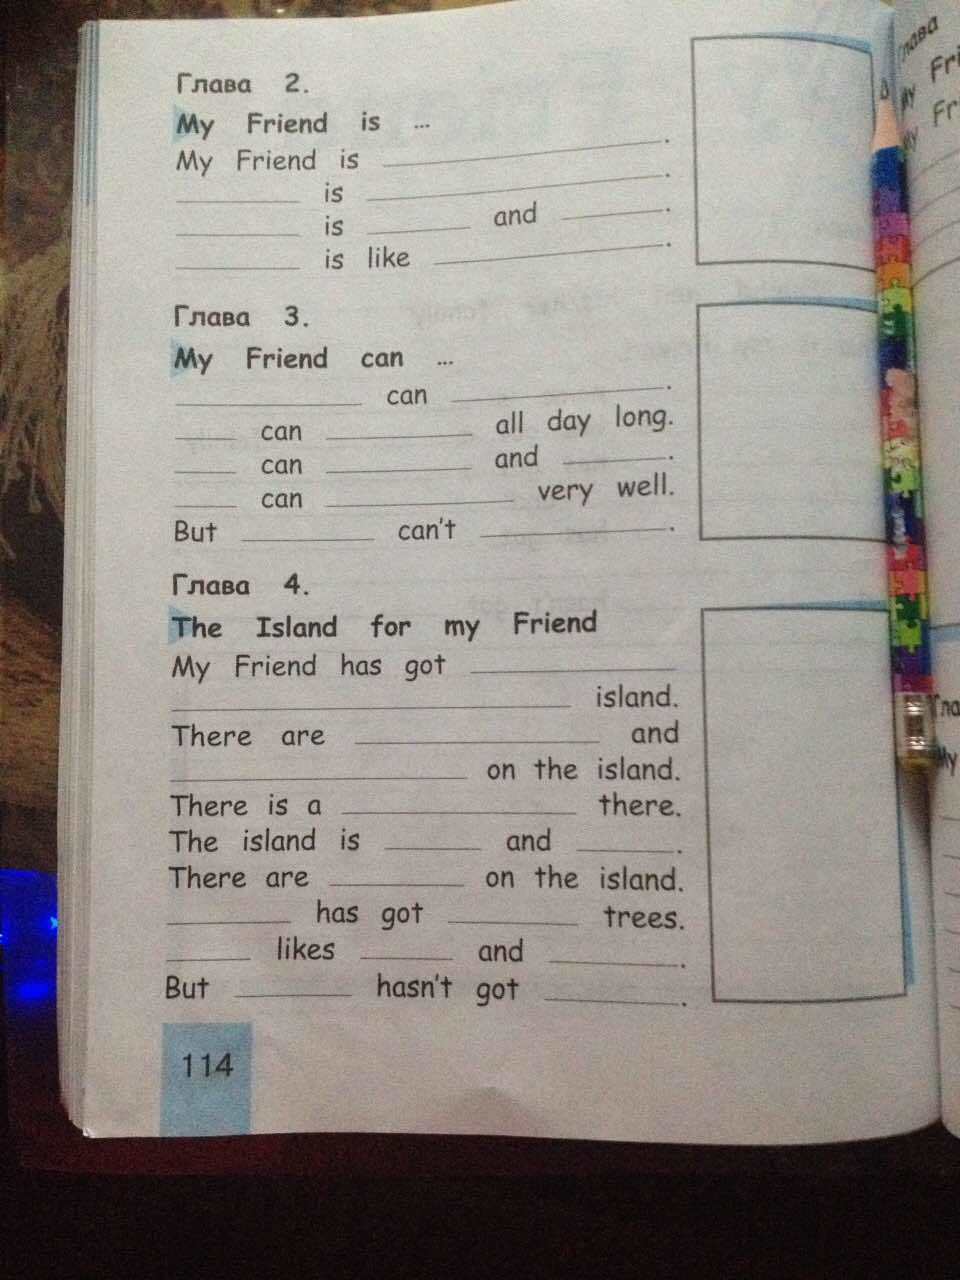 Глава 2.
My Friend is ...
My Friend is ________.
________ is ________.
________ is ________ and ________.
________ is like ________.
Глава 3.
My Friend can ...
________ can ________.
____ can ________ all day long.
____ can ________ and ________.
____ can ________ very well.
But ________ can't ________.
Глава 4.
The Island for my Friend
My Friend has got ________
________ island.
There are ________ and
________ on the island.
There is a ________ there.
The island is ________ and ________.
There are ________ on the island.
________ has got ________ trees.
____ likes ________ and ________.
But ________ hasn't got ________.
114